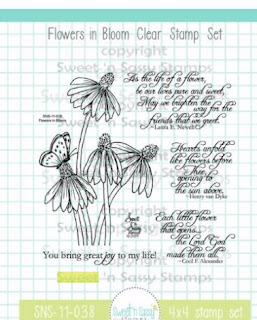 Flowers in Bloom Clear Stamp Set
copyright
Sweet 'n Sassy Stamps
SNS-11-038
Flowers in Bloom
As the life of a flower,
be our lives pure and sweet,
May we brighten the way for the
friends that we greet.
~Laura E. Newell
Hearts unfold
like flowers before
Thee,
opening to
the sun above.
~Henry van Dyke
Each little flower
that opens...
the Lord God
made them all.
~Cecil F. Alexander
You bring great joy to my life!
Sweet 'n Sassy Stamps
SNS-11-038
Sweet 'n Sassy
4x4 stamp set